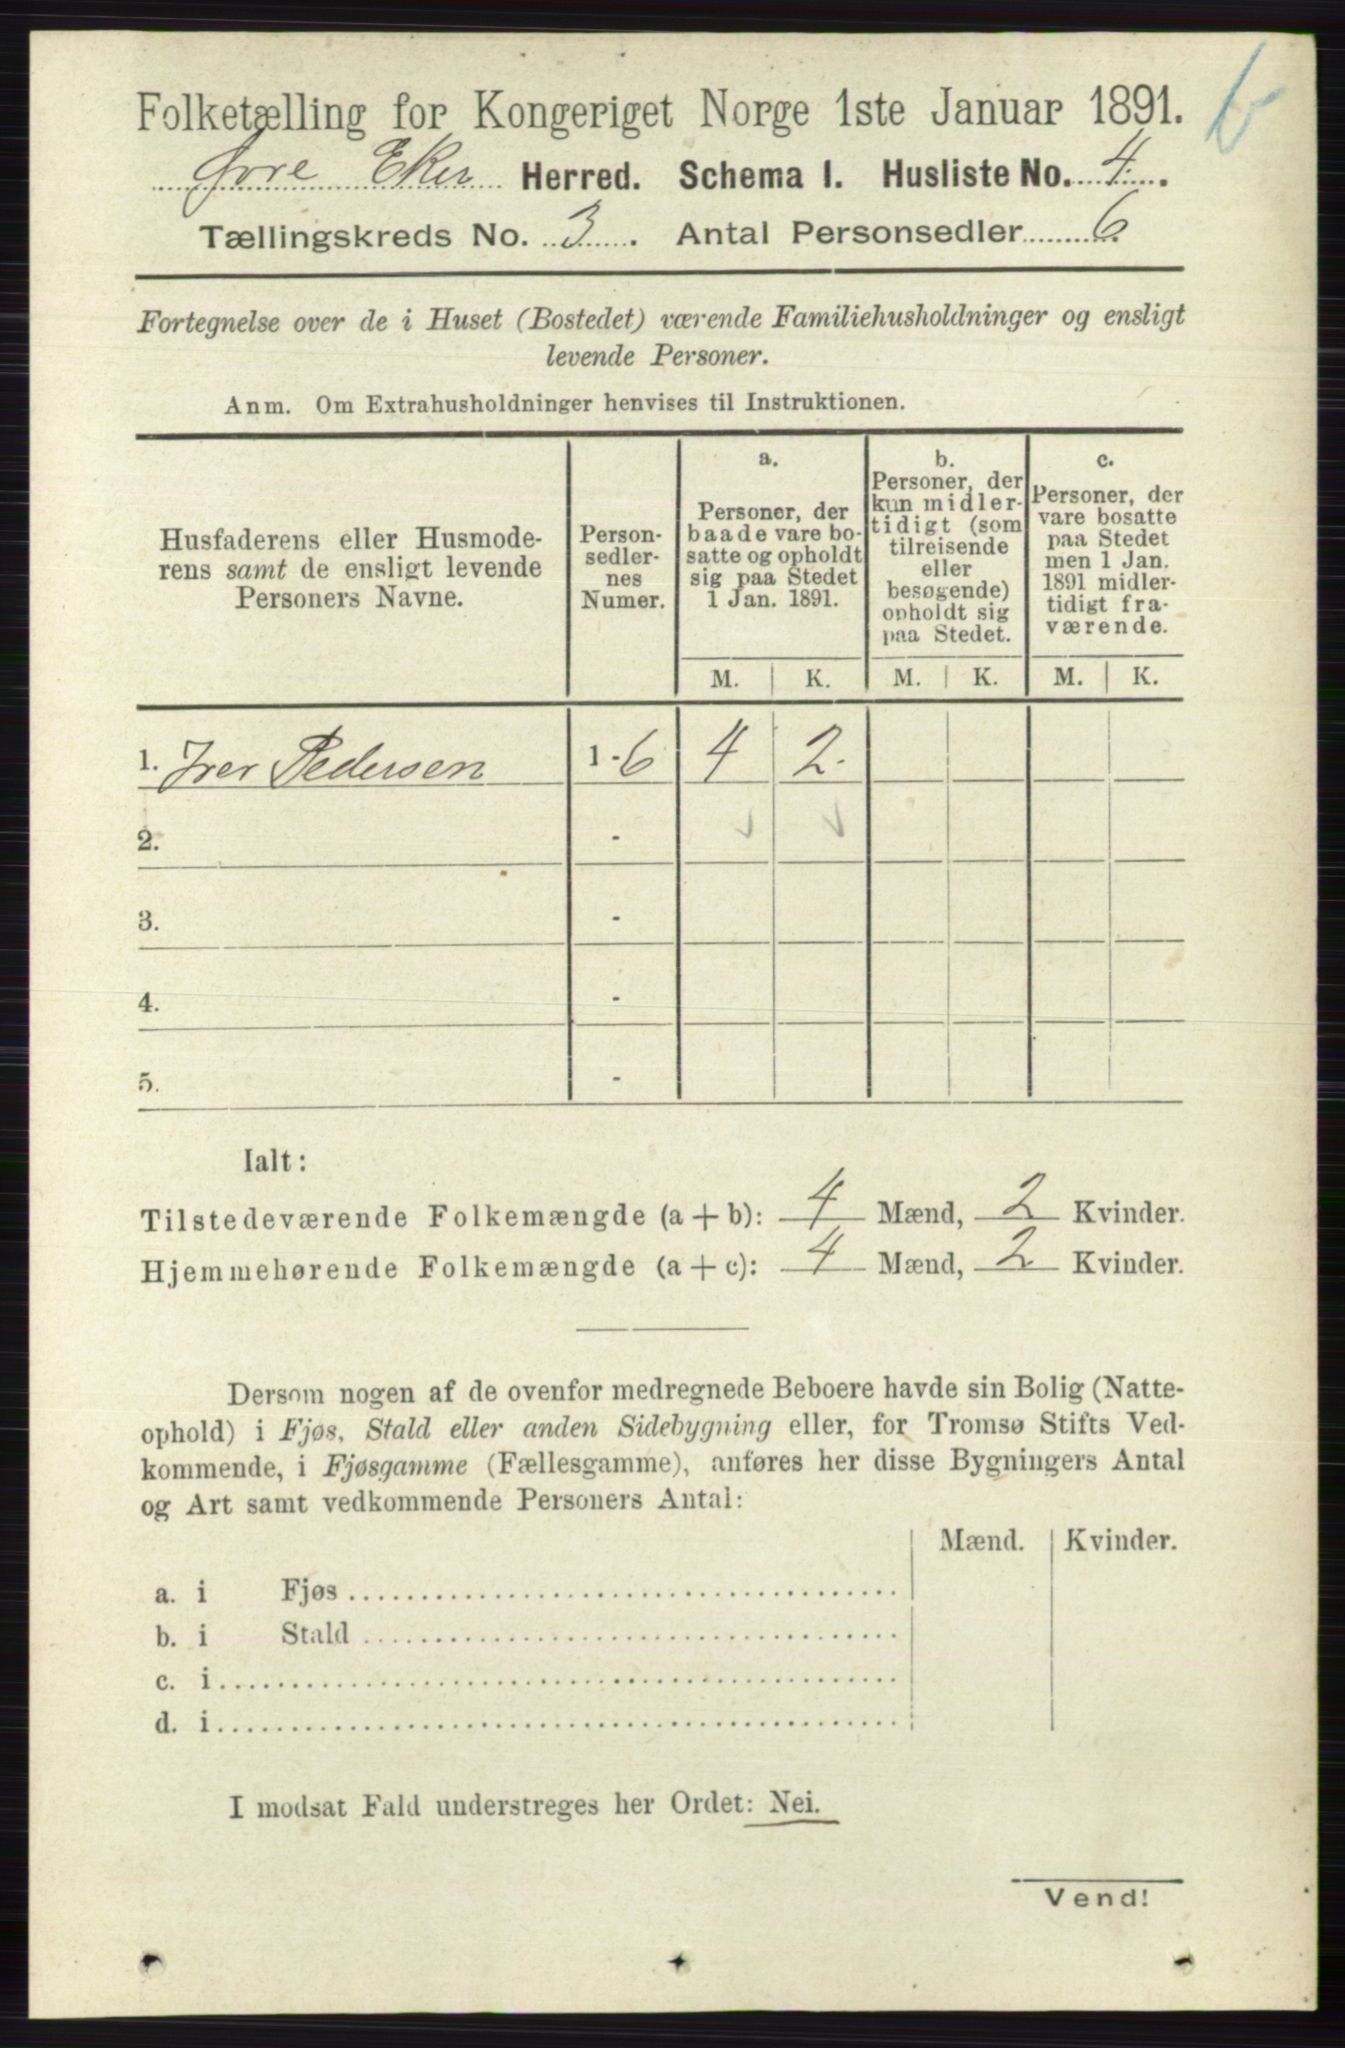 Folketælling for Kongeriget Norge 1ste Januar 1891.
Øvre Eker Herred. Schema I. Husliste No. 4.
Tællingskreds No. 3. Antal Personsedler 6
Fortegnelse over de i Huset (Bostedet) værende Familiehusholdninger og ensligt
levende Personer.
Anm. Om Extrahusholdninger henvises til Instruktionen.
Husfaderens eller Husmode-
rens samt de ensligt levende
Personers Navne.
Person-
sedler-
nes
Numer.
a.
Personer, der
baade vare bo-
satte og opholdt
sig paa Stedet
1 Jan. 1891.
b.
Personer, der
kun midler-
tidigt (som
tilreisende
eller
besøgende)
opholdt sig
paa Stedet.
c.
Personer, der
vare bosatte
paa Stedet
men 1 Jan.
1891 midler-
tidigt fra-
værende.
M. K. M. K. M. K.
1. Iver Pedersen 1-6 4 2.
2. -
3. -
4. -
5. -
Ialt:
Tilstedeværende Folkemængde (a + b): 4 Mænd, 2 Kvinder.
Hjemmehørende Folkemængde (a + c): 4 Mænd, 2 Kvinder.
Dersom nogen af de ovenfor medregnede Beboere havde sin Bolig (Natte-
ophold) i Fjøs, Stald eller anden Sidebygning eller, for Tromsø Stifts Ved-
kommende, i Fjøsgamme (Fællesgamme), anføres her disse Bygningers Antal
og Art samt vedkommende Personers Antal:
Mænd. Kvinder.
a. i Fjøs
b. i Stald
c. i
d. i
I modsat Fald understreges her Ordet: Nei.
Vend!